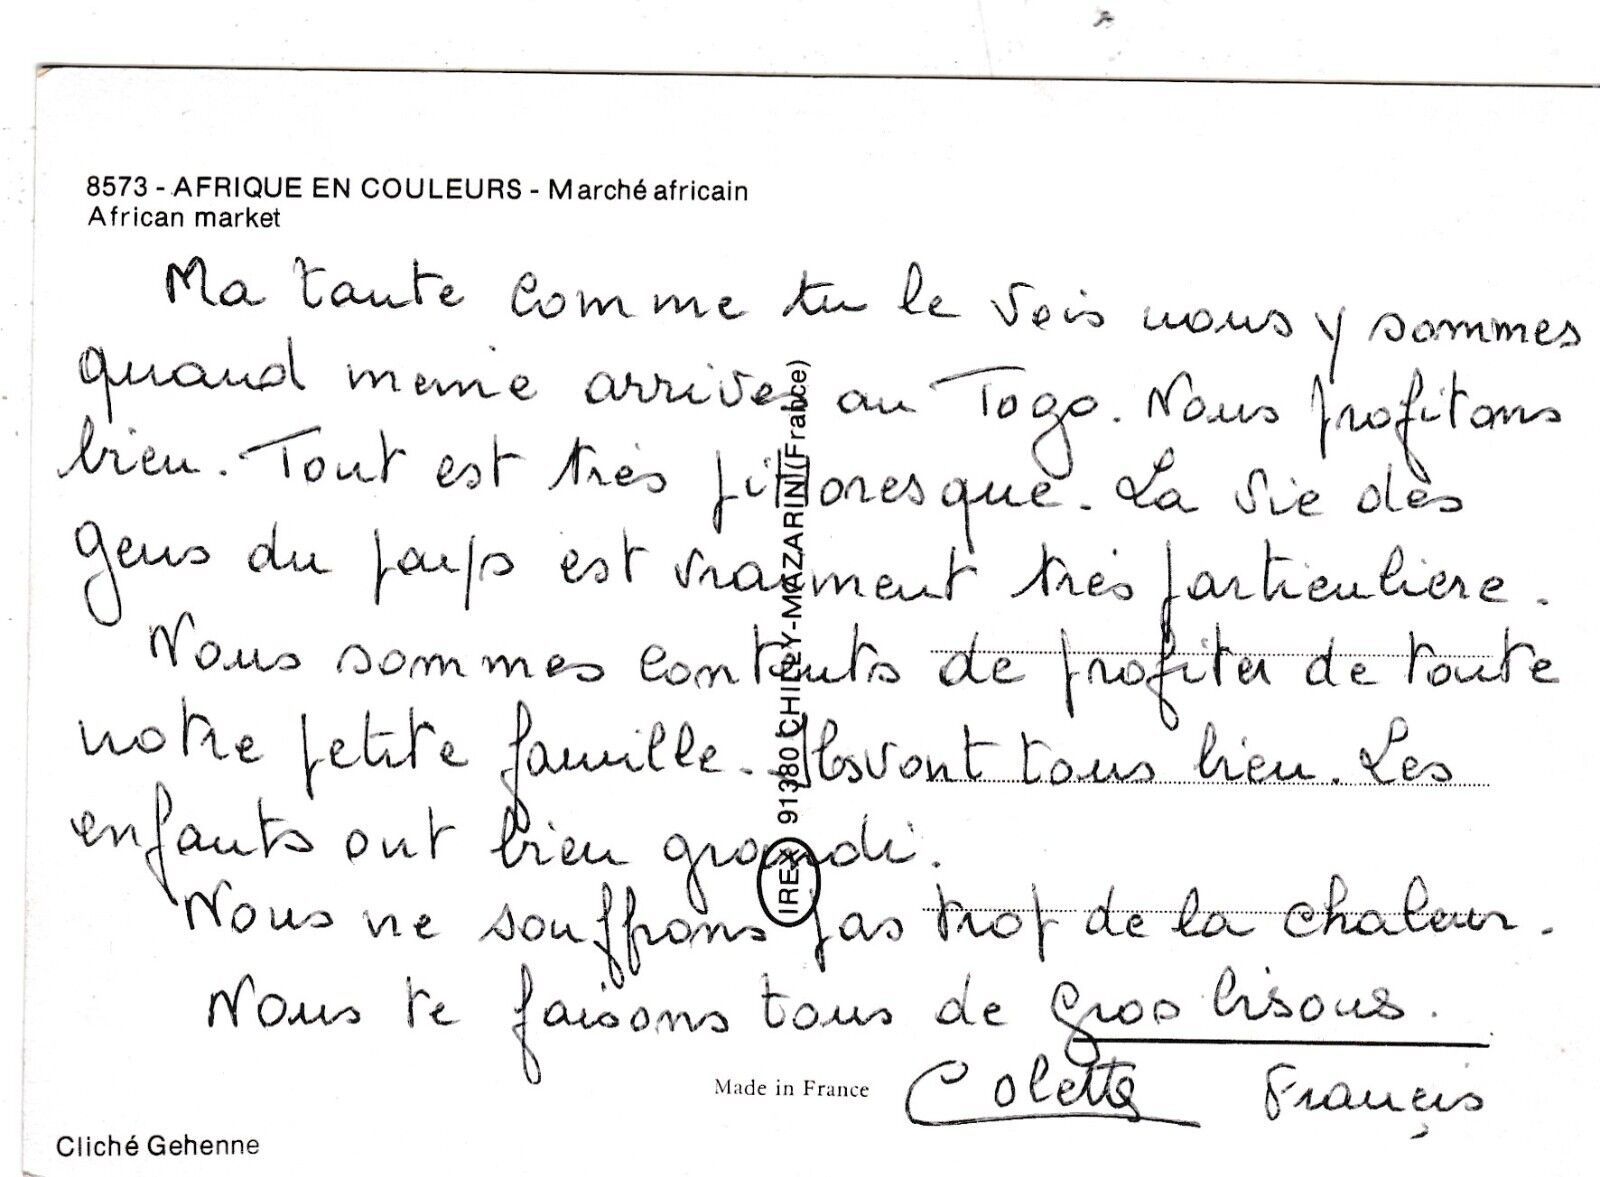 8573 - AFRIQUE EN COULEURS - Marché africain
African market
Ma tante comme tu le vois nous y sommes
quand meme arrives au Togo. Nous profitons
bien. Tout est très pittoresque. La vie des
gens du pays est vraiment très particuliere.
Nous sommes contents de profiter de toute
notre petite famille. Ils vont tous bien. Les
enfants ont bien grandi.
Nous ne souffrons pas trop de la chaleur.
Nous te faisons tous de gros bisous.
Colette Françis
IREX 91380 CHILLY-MAZARIN (France)
Made in France
Cliché Gehenne